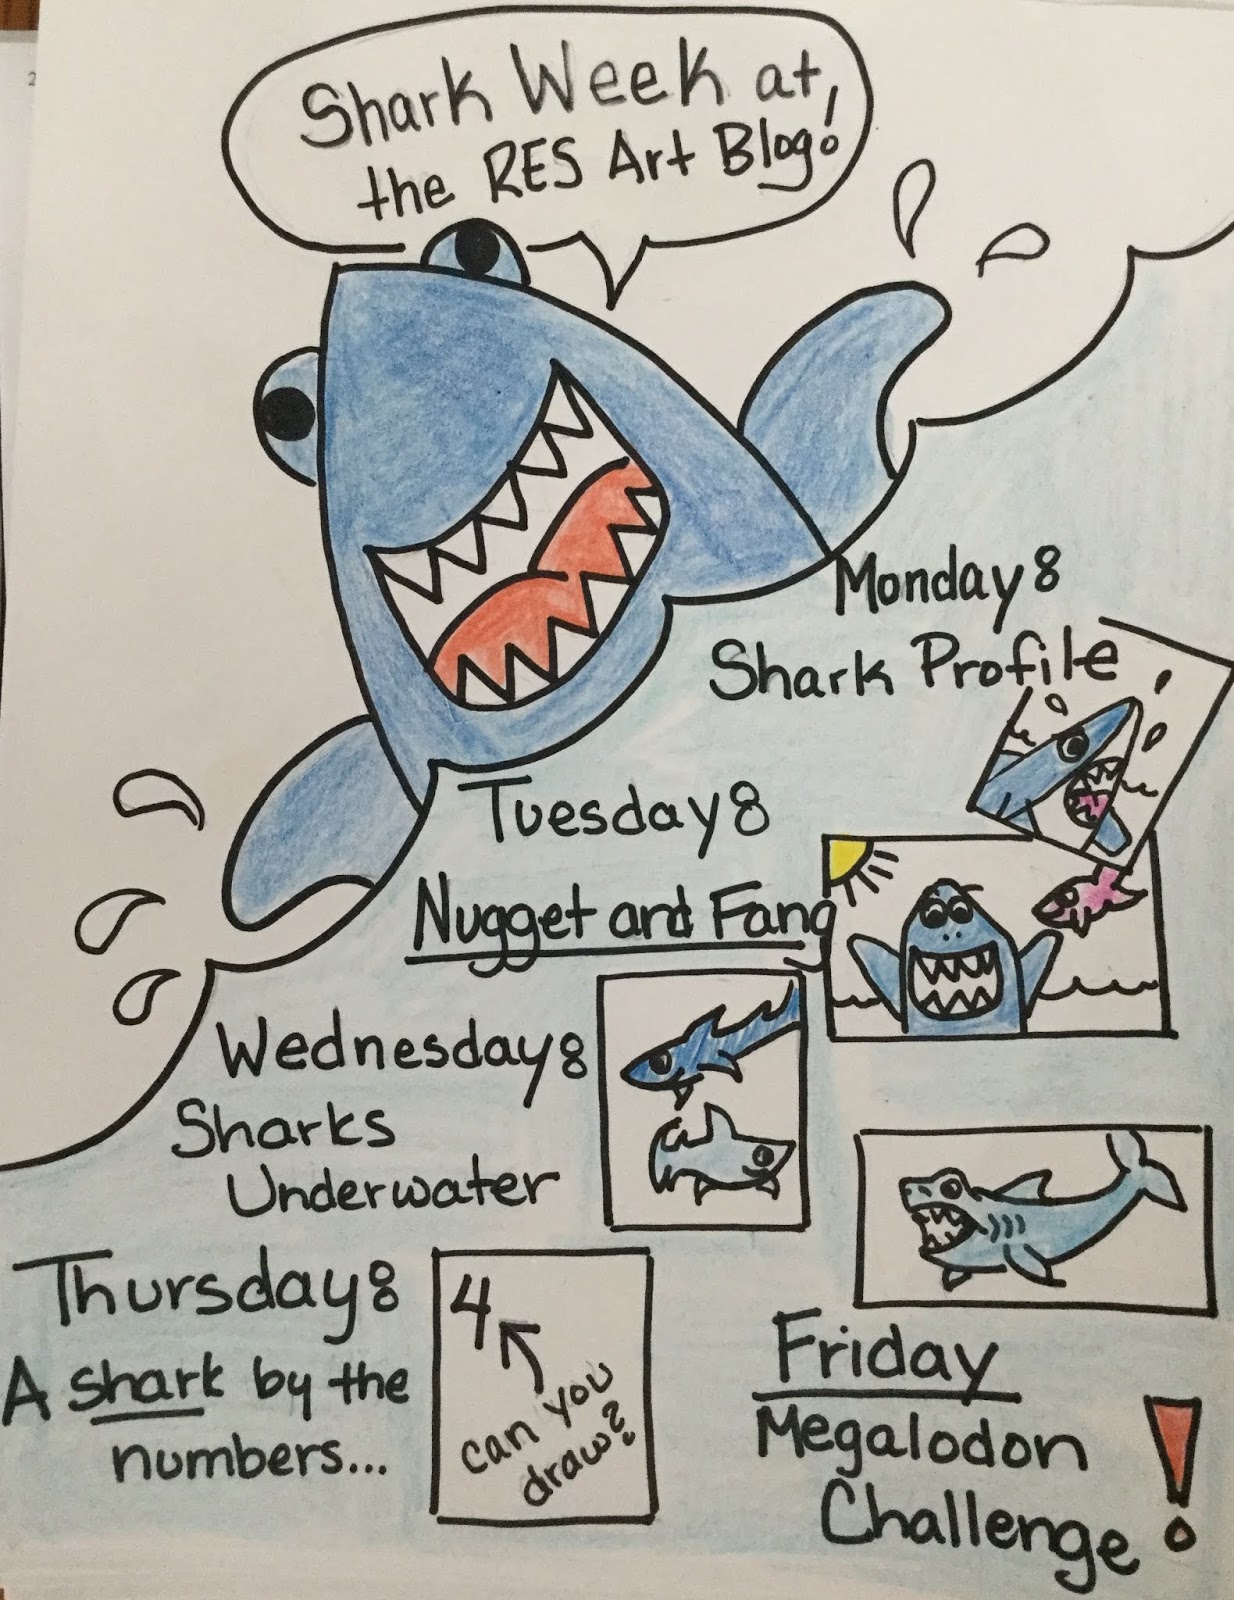 Shark Week at,
the RES Art Blog!
Monday:
Shark Profile
Tuesday:
Nugget and Fang
Wednesday:
Sharks
Underwater
Thursday:
A shark by the
numbers...
4
can you
draw?
Friday
Megalodon
Challenge!
2